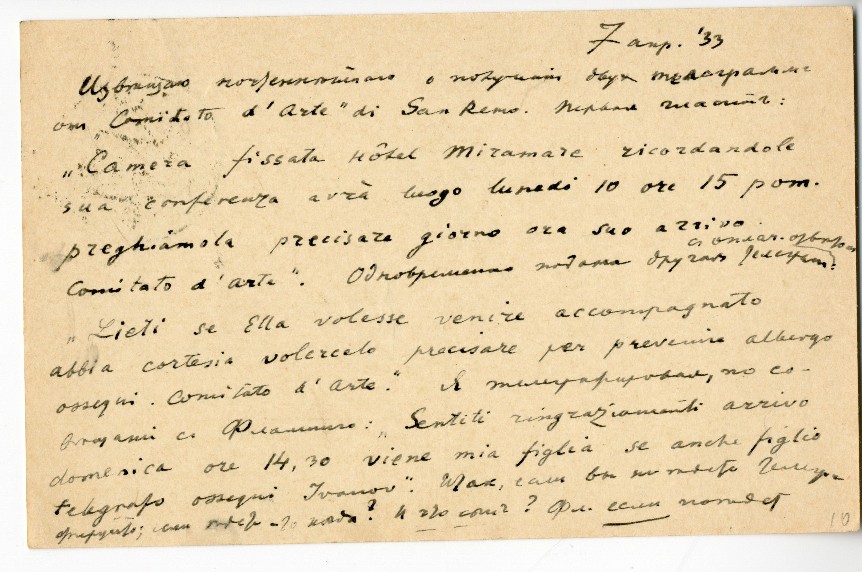 7 апр. '33
Извещаю о получении двух телеграмм
от „Comitato d'Arte" di San Remo. Первая гласит:
„Camera fissata Hôtel Miramare ricordandole
sua conferenza avrà luogo lunedì 10 ore 15 pom.
preghiamola precisare giorno ora suo arrivo
Comitato d'Arte". Одновременно подана другая
„Lieti se Ella volesse venire accompagnato
abbia cortesia volercelo precisare per prevenire albergo
ossequi. Comitato d'Arte." Я телеграфировал, по со-
: „Sentiti ringraziamenti arrivo
domenica ore 14,30 viene mia figlia se anche figlio
telegrafo ossequi Ivanov". Итак, если вы
если то когда? и что ? Фл. если
10